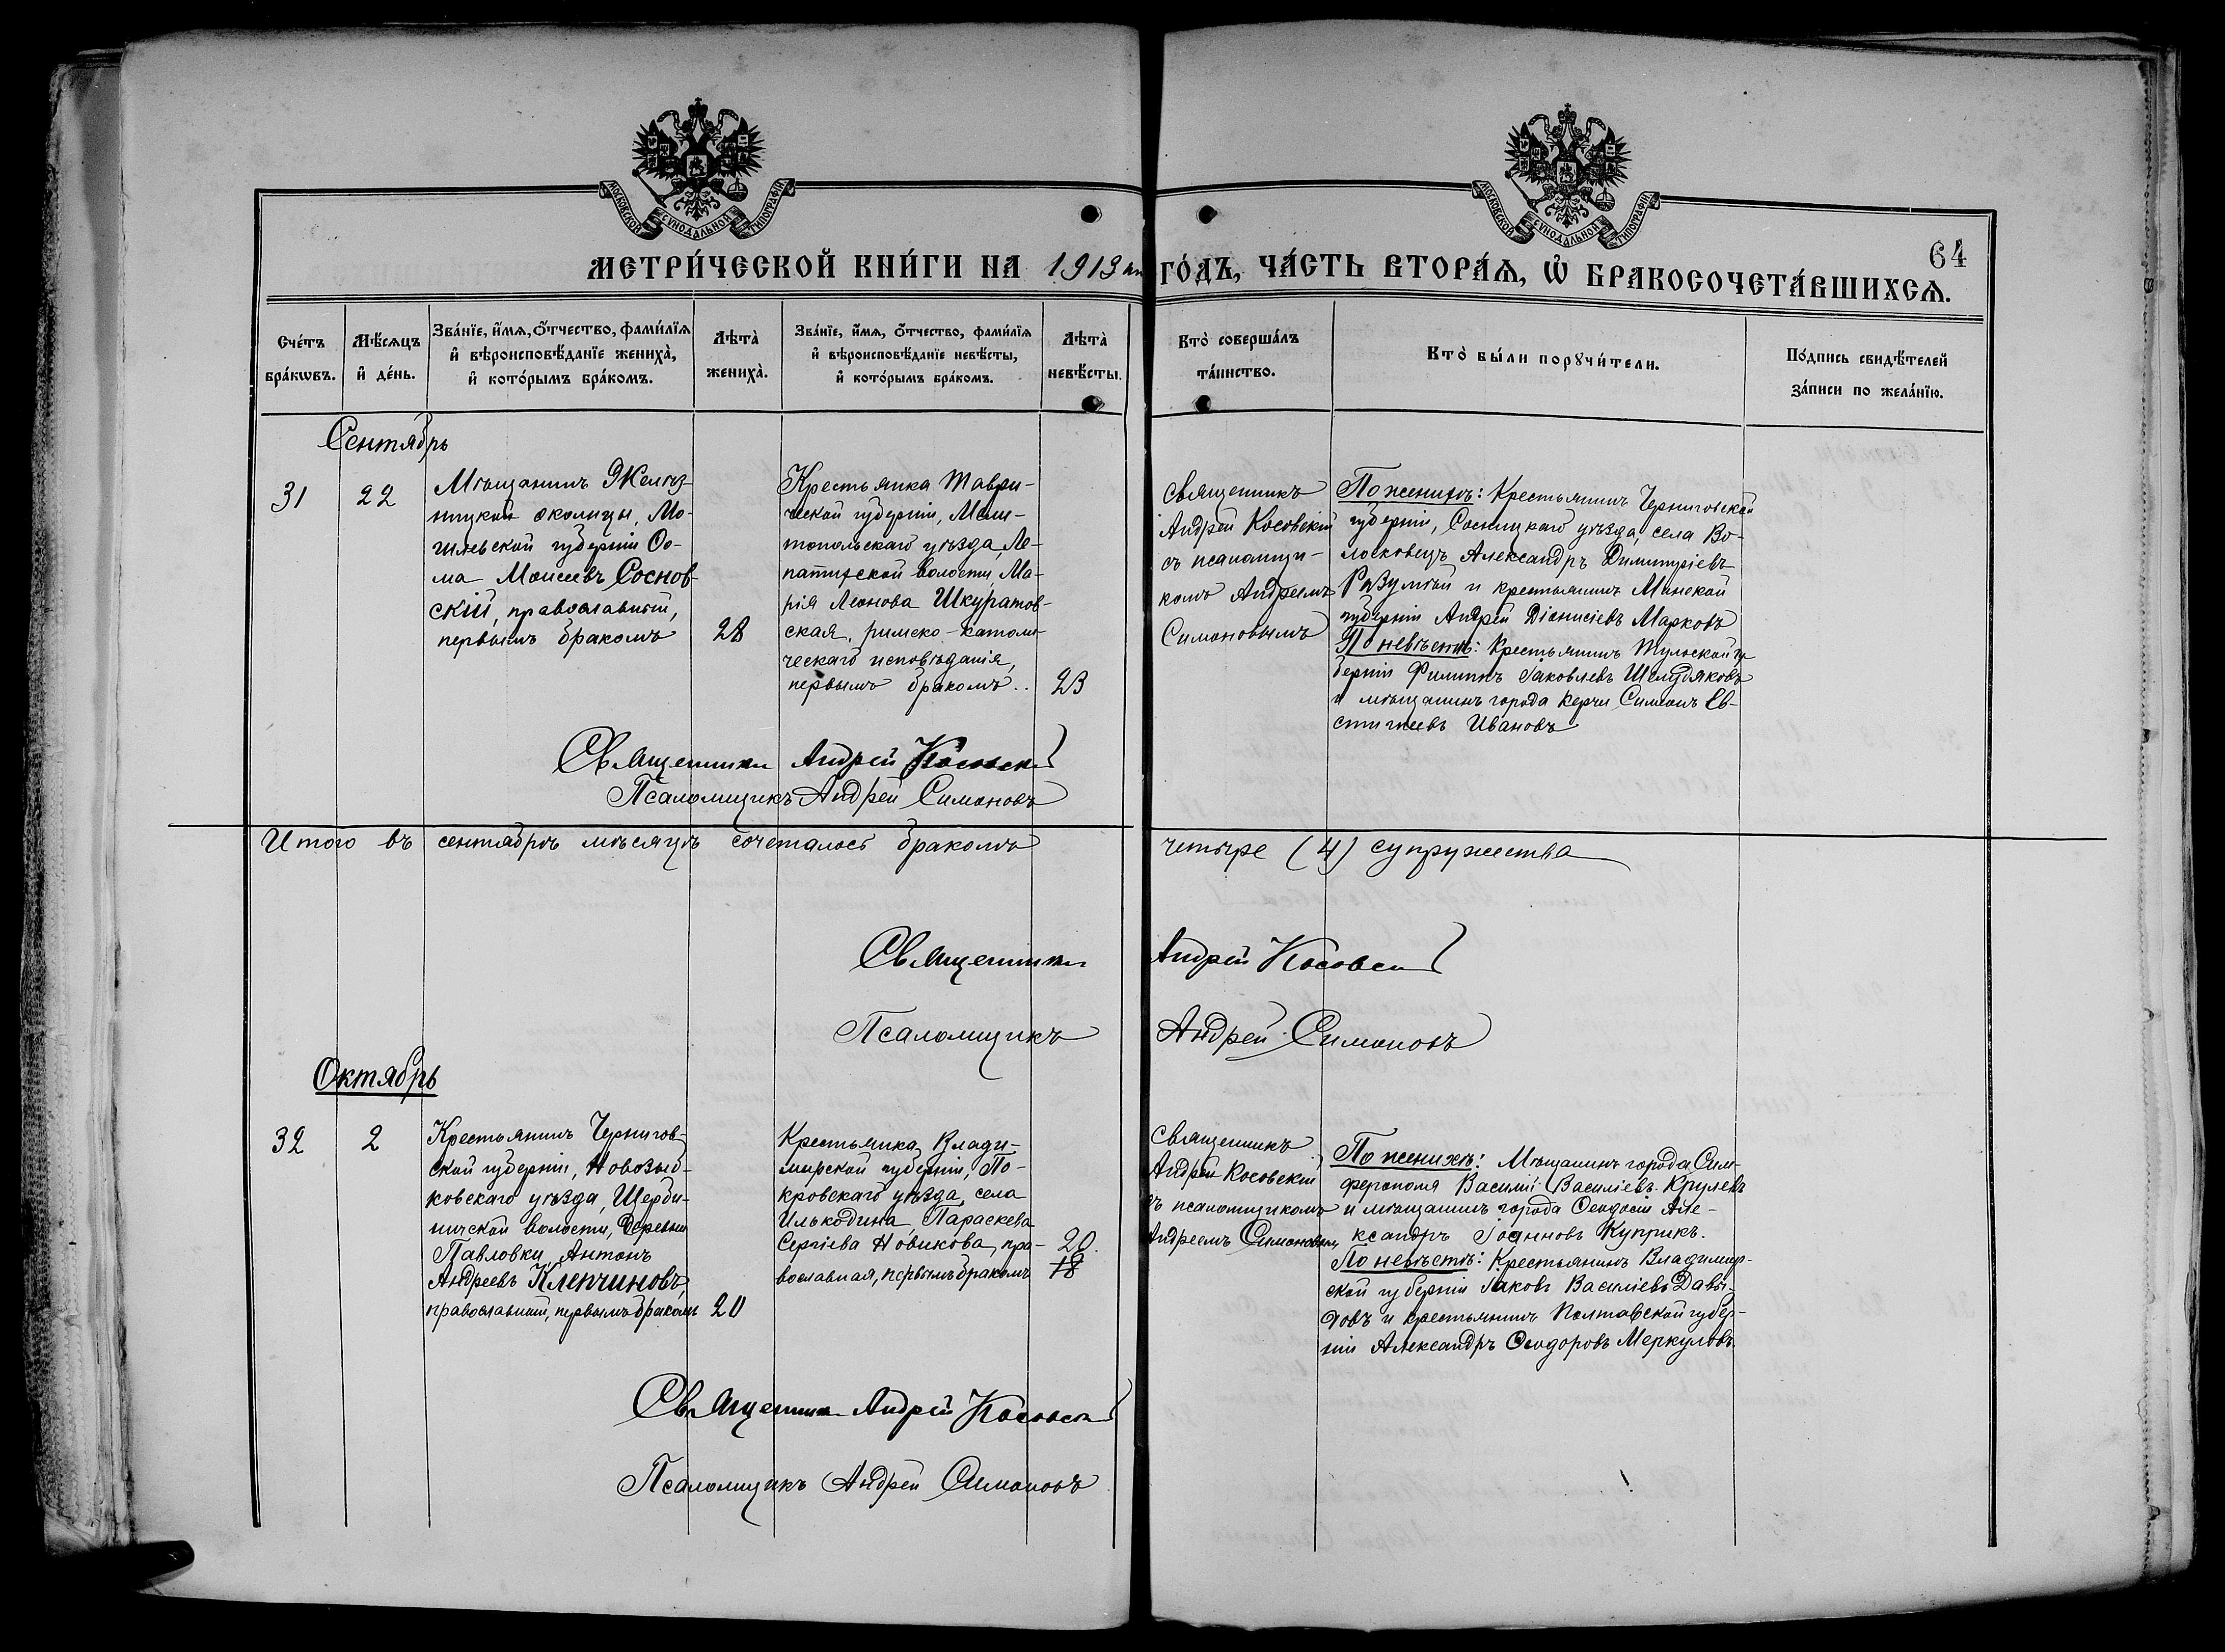 МОСКОВСКОЙ СѴНОДАЛЬНОЙ ТИПОГРАФІИ
МОСКОВСКОЙ СѴНОДАЛЬНОЙ ТИПОГРАФІИ
64
МЕТРИ́ЧЕСКОЙ КНИ́ГИ НА 1913 ГО́ДЪ, ЧА́СТЬ ВТОРА́Ѧ, Ѡ҆ БРАКОСОЧЕТА́ВШИХСѦ.
Сче́тъ
бра́кѡвъ.
Мѣ́сѧцъ
и҆ де́нь.
Зва́нїе, и҆́мѧ, ѻ҆́тчество, фами́лїѧ
и҆ вѣроисповѣ́данїе жениха̀,
и҆ кото́рымъ бра́комъ.
Лѣта̀
жениха̀.
Зва́нїе, и҆́мѧ, ѻ҆́тчество, фами́лїѧ
и҆ вѣроисповѣ́данїе невѣ́сты,
и҆ кото́рымъ бра́комъ.
Лѣта̀
невѣ́сты.
Кто̀ соверша́лъ
та́инство.
Кто̀ бы́ли порꙋчи́тели.
По́дпись свидѣ́телей
за́писи по жела́нїю.
Сентябрь
31
22
Мѣщанинъ Желѣз-
ницкой околицы, Мо-
гилевской губерніи Ѳо-
ма Моисеевъ Соснов-
скій, православный,
первымъ бракомъ
28
Крестьянка Таври-
ческой губерніи, Мели-
топольскаго уѣзда, Ле-
патихской волости, Ма-
рія Леонова Шкуратов-
ская, римско-католи-
ческаго исповѣданія,
первымъ бракомъ..
23
Священникъ
Андрей Косовскій
съ псаломщи-
комъ Андреемъ
Симоновымъ
По женихѣ: Крестьянинъ Черниговской
губерніи, Сосницкаго уѣзда, села Во-
лосковецъ Александръ Димитріевъ
Разумный и крестьянинъ Минской
губерніи Андрей Діонисіевъ Марковъ
По невѣстѣ: Крестьянинъ Тульской гу-
берніи Филиппъ Іаковлевъ Шелудяковъ
и мѣщанинъ города Керчи Симеонъ Ев-
стигнеевъ Ивановъ
Священникъ Андрей Косовскій
Псаломщикъ Андрей Симоновъ
Итого въ сентябрѣ мѣсяцѣ сочеталось бракомъ четыре (4) супружества
Священникъ Андрей Косовскій
Псаломщикъ Андрей Симоновъ
Октябрь
32
2
Крестьянинъ Чернигов-
ской губерніи, Новозыб-
ковскаго уѣзда, Щерби-
ничской волости, деревни
Павловки, Антонъ
Андреевъ Клепчиновъ,
православный, первымъ бракомъ
20
Крестьянка Влади-
мирской губерніи, По-
кровскаго уѣзда, села
Илькодина Параскева
Сергіева Новикова, пра-
вославная, первымъ бракомъ
20.
18
Священникъ
Андрей Косовскій
съ псаломщикомъ
Андреемъ Симоновымъ
По женихѣ: Мѣщанинъ города Сим-
ферополя Василій Василіевъ Крулевъ
и мѣщанинъ города Ѳеодосіи Але-
ксандръ Іоанновъ Куприкъ.
По невѣстѣ: Крестьянинъ Владимир-
ской губерніи Іаковъ Василіевъ Давы-
довъ и крестьянинъ Полтавской губер-
ніи Александръ Ѳеодоровъ Меркуловъ.
Священникъ Андрей Косовскій
Псаломщикъ Андрей Симоновъ